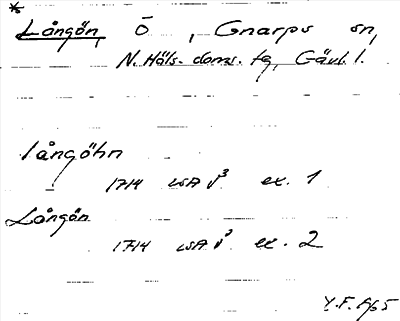 *
Långön, Ö, Gnarps sn,
N. Häls. doms. tg, Gävl. l.
långöhn
1714 LSA V³ ex. 1
Långön
1714 LSA V³ ex. 2